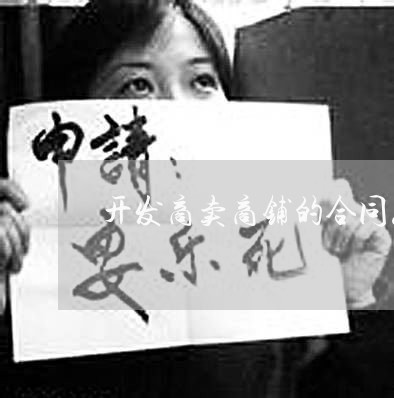 申請：
开发商卖商铺的合同
安乐死